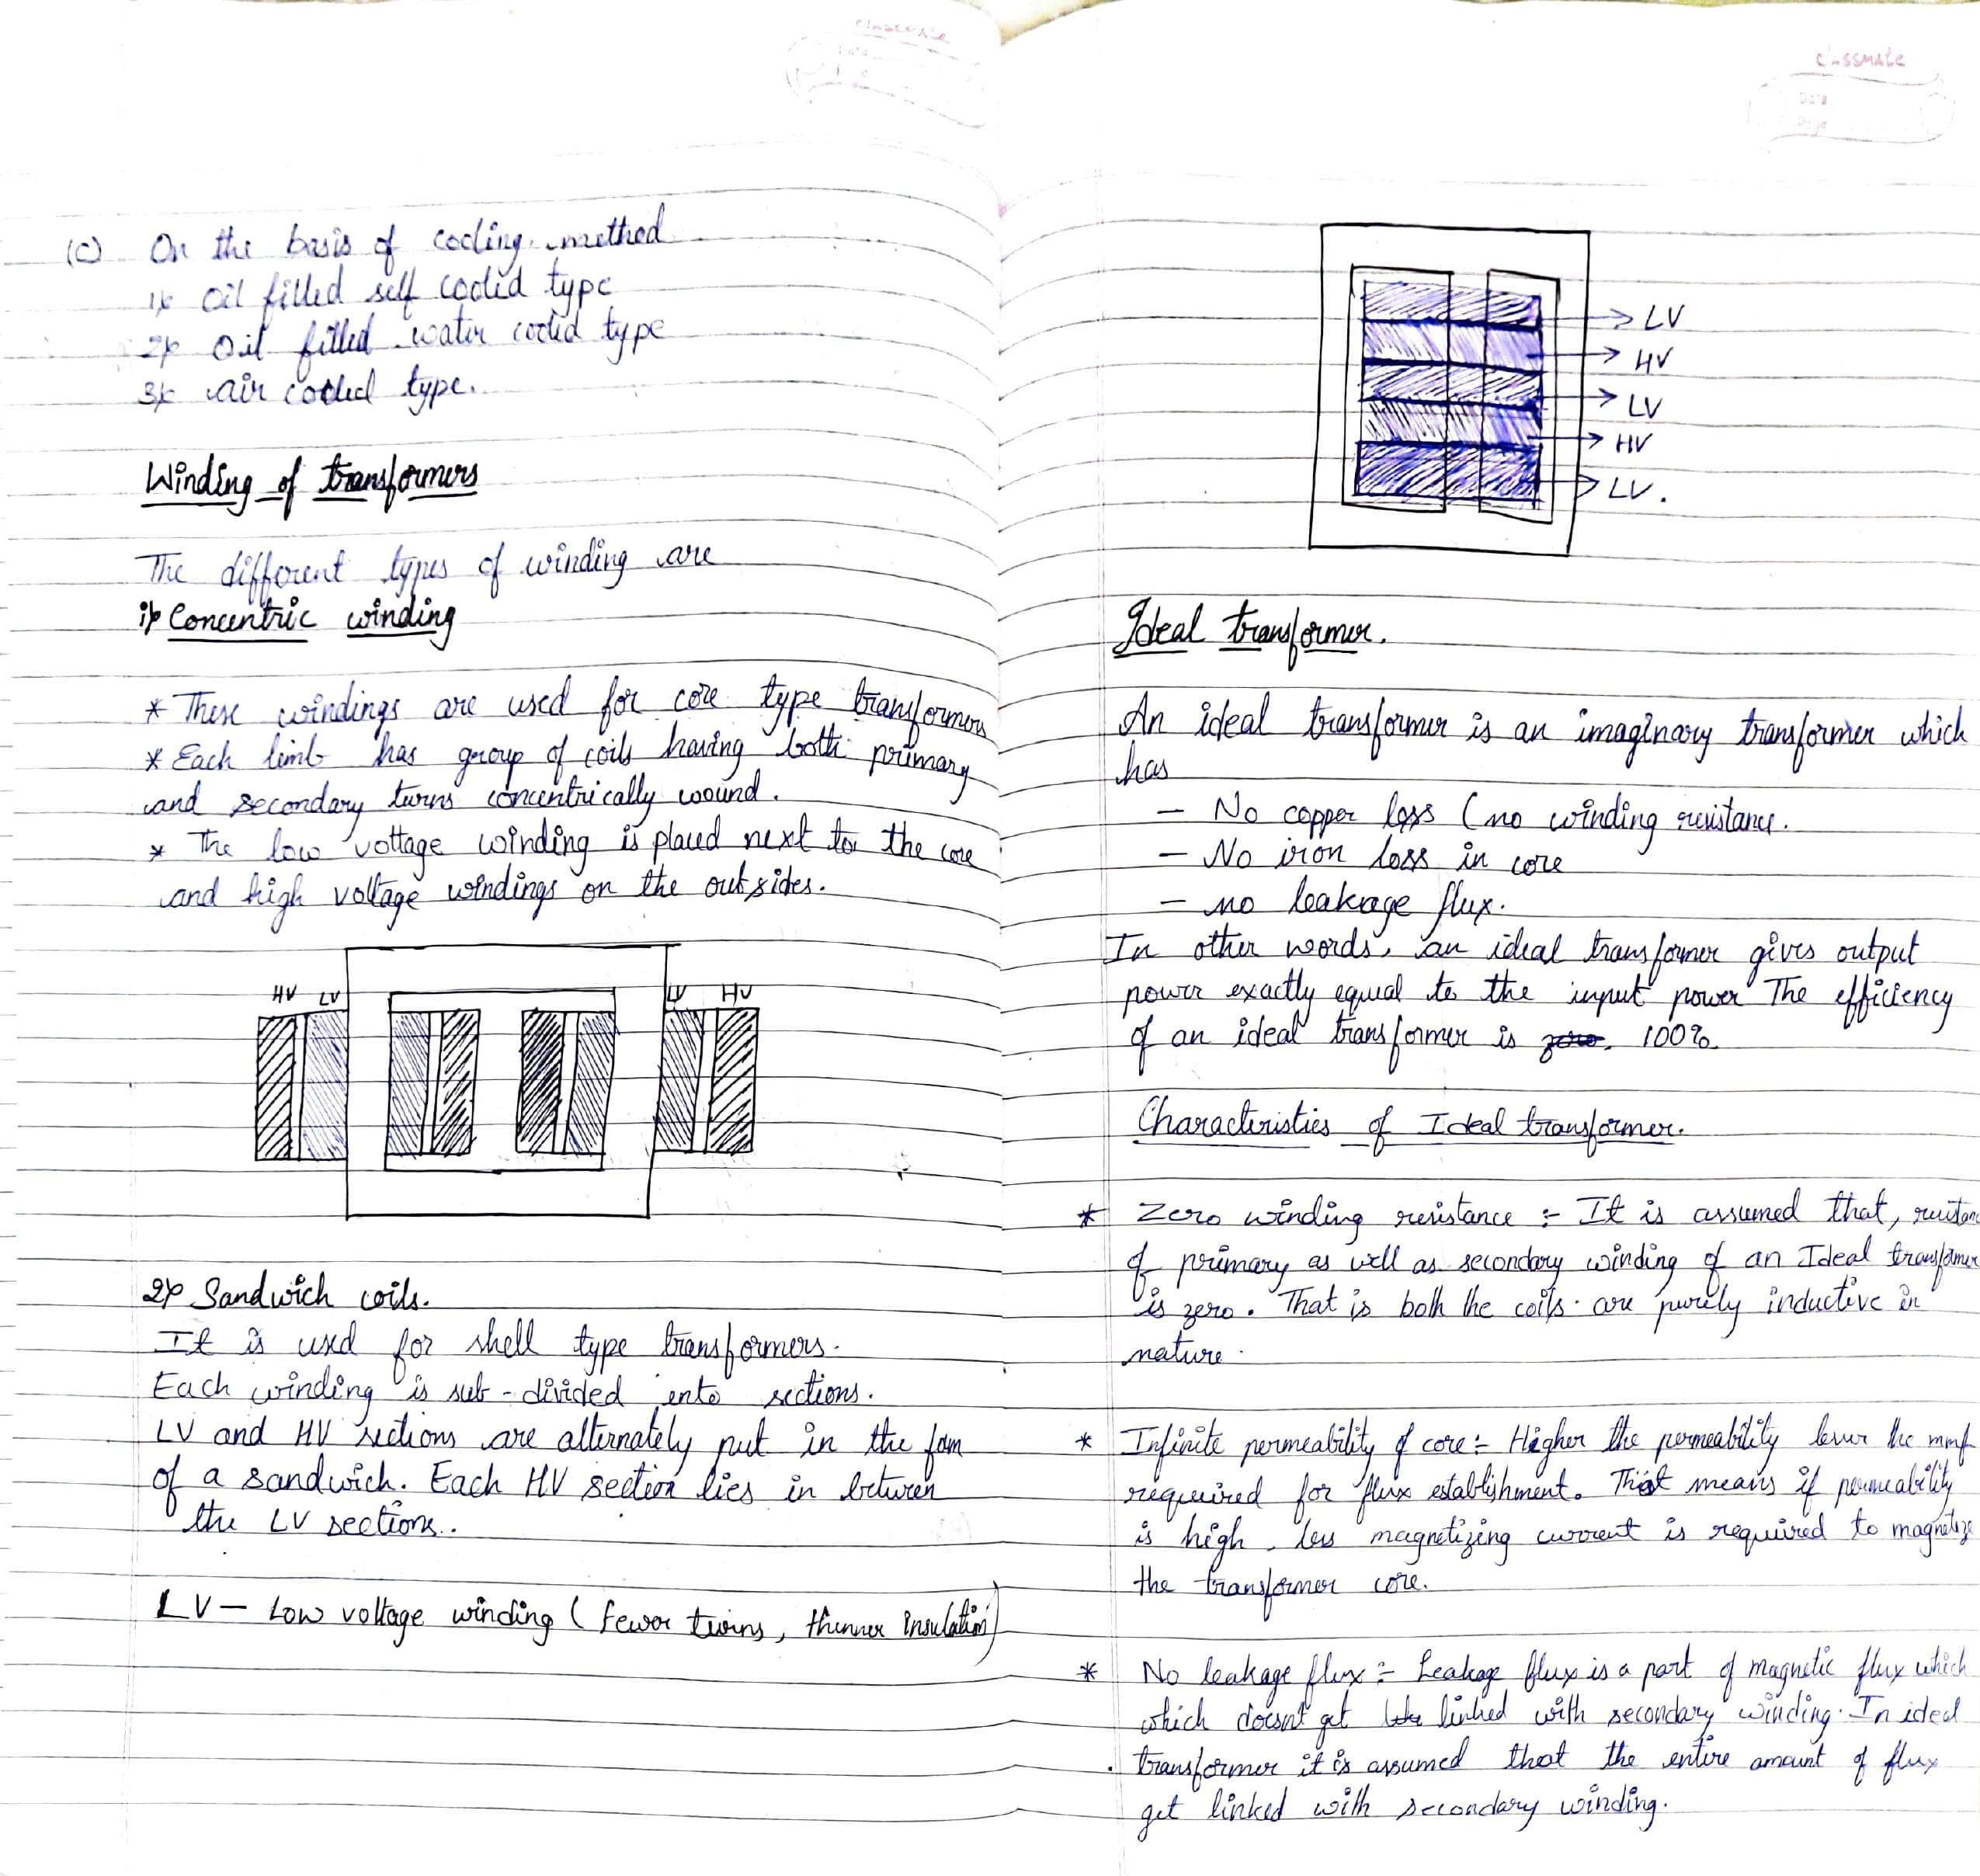 classmate
Date
(c) On the basis of cooling method
1) Oil filled self cooled type
2) Oil filled water cooled type
3) air cooled type.
Winding of transformers
The different types of winding are
i) Concentric winding
* These windings are used for core type transformers
* Each limb has group of coils having both primary
and secondary turns concentrically wound.
* The low voltage winding is placed next to the core
and high voltage windings on the outsides.
HV LV LV HV
2) Sandwich coils.
It is used for shell type transformers.
Each winding is sub-divided into sections.
LV and HV sections are alternately put in the fom
of a sandwich. Each HV section lies in between
the LV sections..
LV - Low voltage winding (fewer turns, thinner insulation)
classmate
Date
Page
LV
HV
LV
HV
LV.
Ideal transformer.
An ideal transformer is an imaginary transformer which
has
- No copper loss (no winding resistance.
- No iron loss in core
- no leakage flux.
In other words, an ideal transformer gives output
power exactly equal to the input power The efficiency
of an ideal transformer is zero. 100%.
Characteristics of Ideal transformer.
* Zero winding resistance :- It is assumed that, resistance
of primary as well as secondary winding of an Ideal transformer
is zero. That is both the coils are purely inductive in
nature.
* Infinite permeability of core :- Higher the permeability lesser the mmf
required for flux establishment. That means if permeability
is high, less magnetizing current is required to magnetize
the transformer core.
* No leakage flux :- Leakage flux is a part of magnetic flux which
which doesn't get linked with secondary winding. In ideal
transformer it is assumed that the entire amount of flux
get linked with secondary winding.